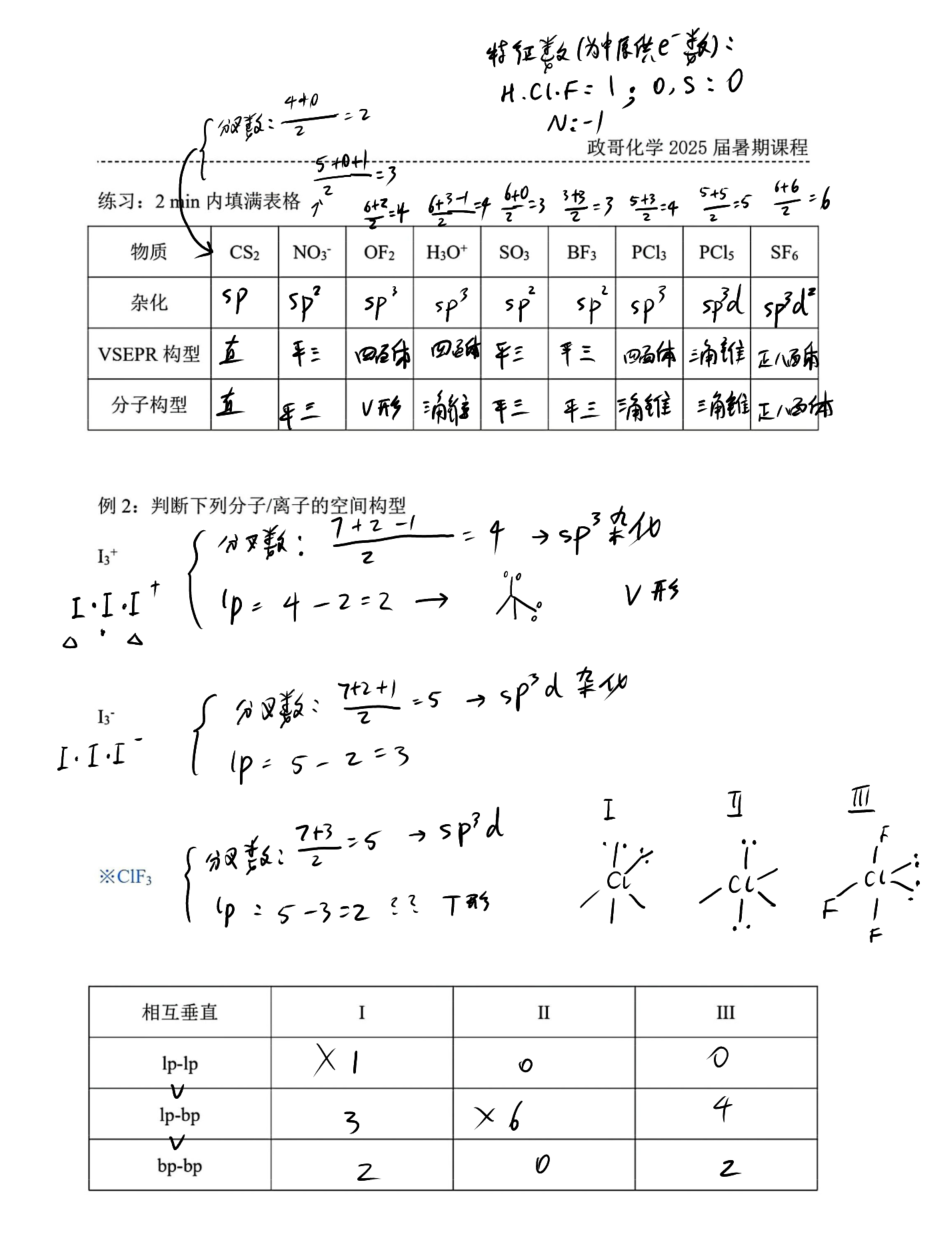 特征数(为中原供e⁻数):
H.Cl.F=1; O,S:0
N:-1
分叉数: (4+0)/2 =2
政哥化学 2025 届暑期课程
(5+0+1)/2 =3
练习：2 min 内填满表格
(6+2)/2=4 (6+3-1)/2=4 (6+0)/2=3 (3+3)/2=3 (5+3)/2=4 (5+5)/2=5 (6+6)/2=6
物质 CS₂ NO₃⁻ OF₂ H₃O⁺ SO₃ BF₃ PCl₃ PCl₅ SF₆
杂化 sp sp² sp³ sp³ sp² sp² sp³ sp³d sp³d²
VSEPR 构型 直 平三 四面体 四面体 平三 平三 四面体 三角双锥 正八面体
分子构型 直 平三 V形 三角锥 平三 平三 三角锥 三角双锥 正八面体
例 2：判断下列分子/离子的空间构型
I₃⁺
分叉数: (7+2-1)/2 = 4 → sp³杂化
I·I·I⁺
lp = 4-2=2 → V形
I₃⁻
分叉数: (7+2+1)/2 =5 → sp³d 杂化
I·I·I⁻
lp = 5-2=3
I II III
※ClF₃
分叉数: (7+3)/2 =5 → sp³d
lp = 5-3=2 ?? T形
Cl Cl F Cl F F
相互垂直 I II III
lp-lp ×1 0 0
∨
lp-bp 3 ×6 4
∨
bp-bp 2 0 2